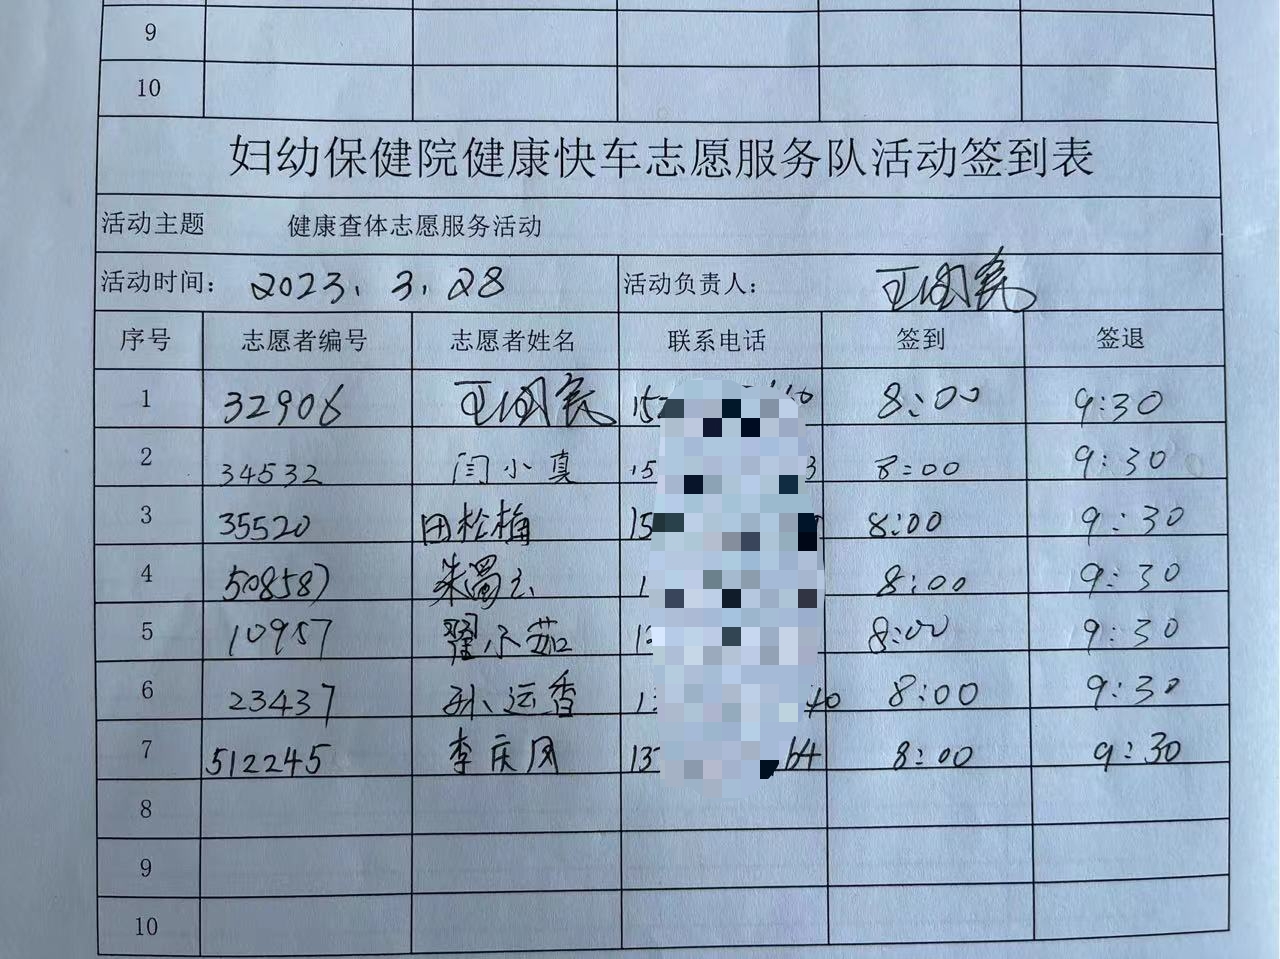 9
10
妇幼保健院健康快车志愿服务队活动签到表
活动主题 健康查体志愿服务活动
活动时间： 2023.3.28 活动负责人：
序号 志愿者编号 志愿者姓名 联系电话 签到 签退
1 32906 8:00 9:30
2 34532 闫小真 15 3 8:00 9:30
3 35520 田松梅 15 8:00 9:30
4 508587 1 8:00 9:30
5 10957 翟小茹 8:00 9:30
6 23437 孙运香 40 8:00 9:30
7 512245 李庆凤 137 64 8:00 9:30
8
9
10